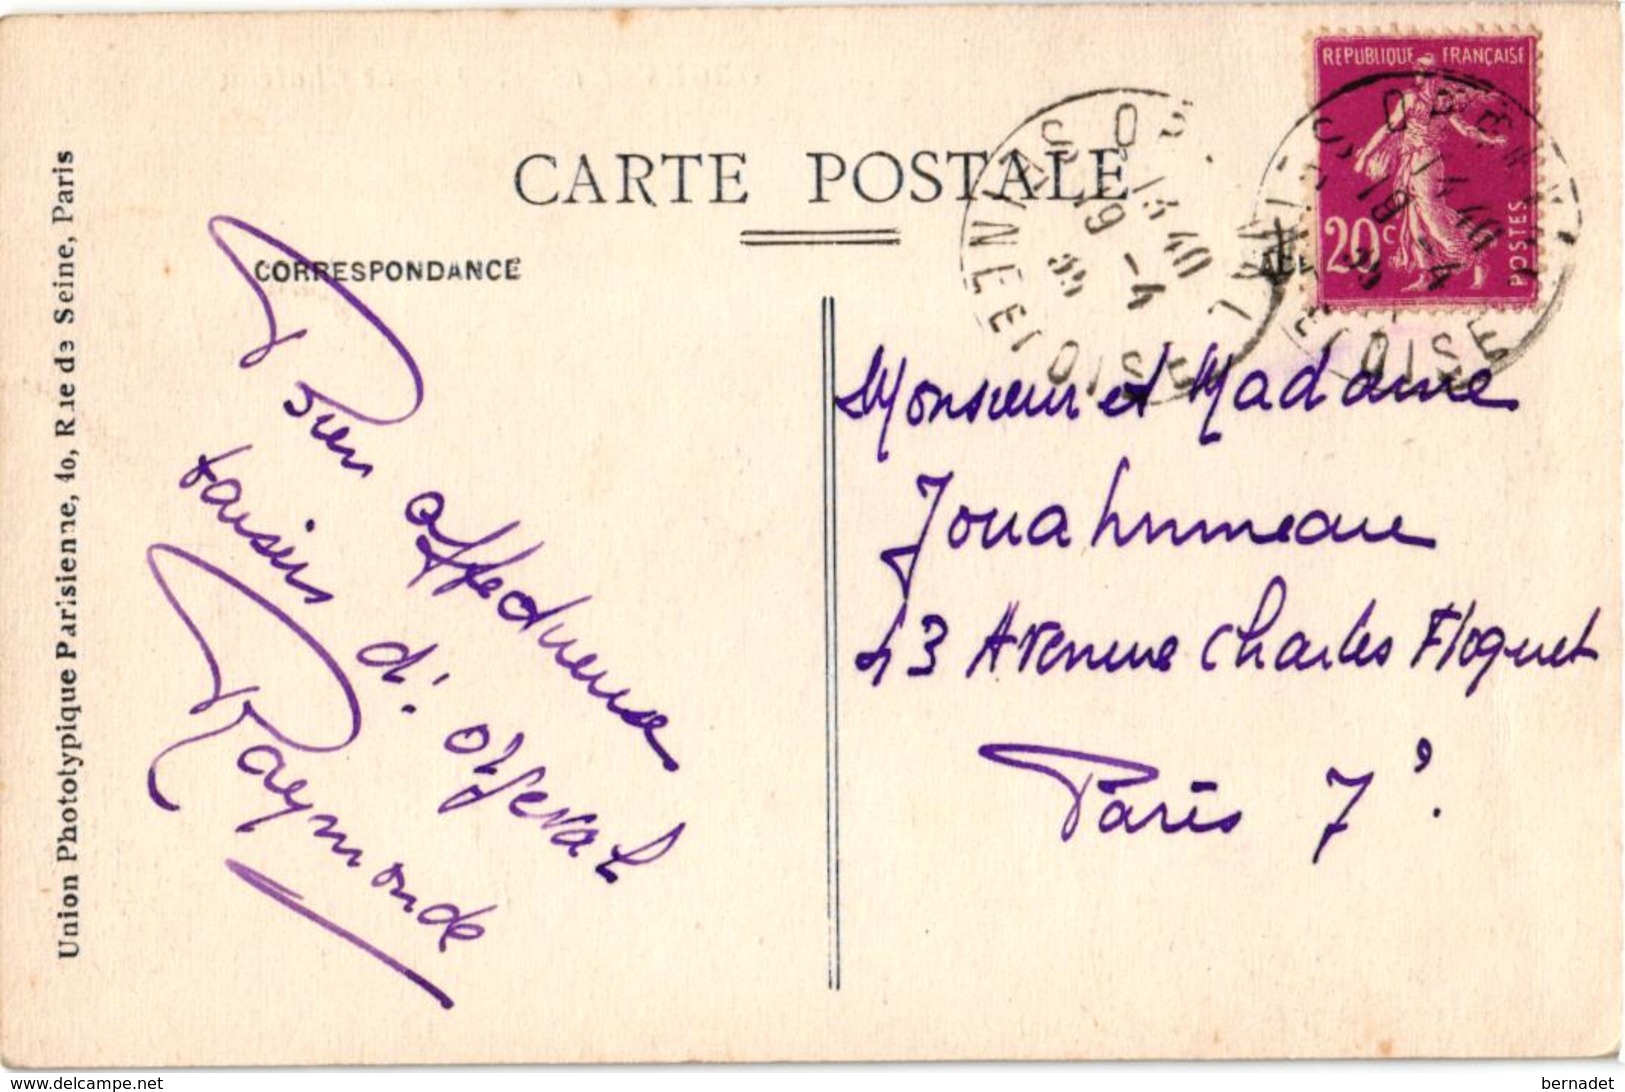 CARTE POSTALE
CORRESPONDANCE
Bien affectueux
baisers
d'orgeval
Raymonde
Monsieur et Madame
Jouahnneau
43 Avenue Charles Floquet
Paris 7e.
REPUBLIQUE FRANÇAISE
20c
POSTES
ORGEVAL
13 40
19 -4
SEINE ET OISE
Union Phototypique Parisienne, 40, Rue de Seine, Paris
www.delcampe.net
bernadet